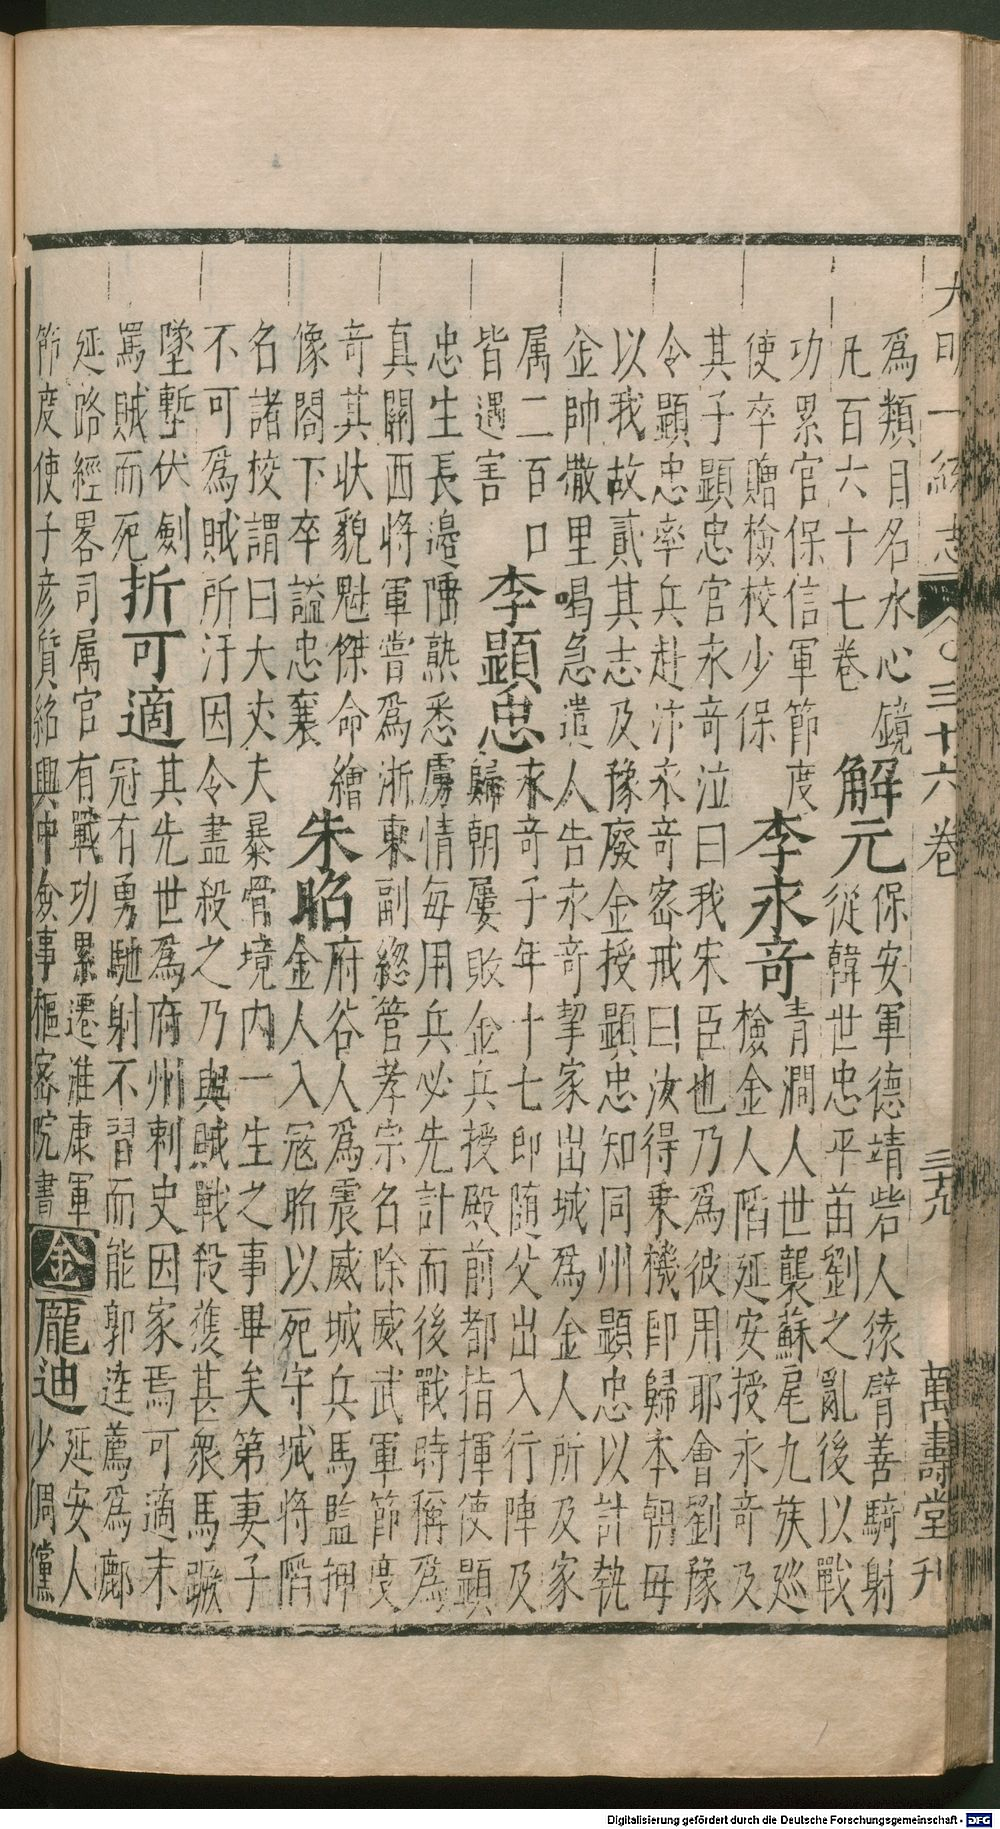 大明一統志 三十六卷 三十九 萬壽堂刊
為類目名水心鏡
凡百六十七卷
解元
保安軍德靖砦人猿臂善騎射
從韓世忠平苗劉之亂後以戰
功累官保信軍節度
使卒贈檢校少保
李永竒
青澗人世襲蘇尾九族巡
檢金人陷延安授永竒及
其子顯忠官永竒泣曰我宋臣也乃為彼用耶會劉豫
令顯忠率兵赴汴永竒密戒曰汝得乗機即歸本朝毋
以我故貳其志及豫廢金授顯忠知同州顯忠以計執
金帥撒里喝急遣人告永竒挈家出城為金人所及家
属二百口
皆遇害
李顯忠
永竒子年十七即随父出入行陣及
歸朝屢敗金兵授殿前都指揮使顯
忠生長邊陲熟悉虜情每用兵必先計而後戰時稱為
真關西將軍嘗為浙東副緫管孝宗名除威武軍節度
竒其状貌魁傑命繪
像閣下卒謚忠襄
朱昭
府谷人為震威城兵馬監押
金人入冦昭以死守城將陷
名諸校謂曰大丈夫暴骨境内一生之事畢矣第妻子
不可為賊所汙因令盡殺之乃與賊戰殺獲甚衆馬蹶
墜塹伏劍
罵賊而死
折可適
其先世為府州刺史因家焉可適未
冠有勇馳射不習而能郭逵薦為鄜
延路經畧司属官有戰功累遷淮康軍
節度使子彦質紹興中僉事樞密院書
金
龎迪
延安人
少倜儻
Digitalisierung gefördert durch die Deutsche Forschungsgemeinschaft - DFG